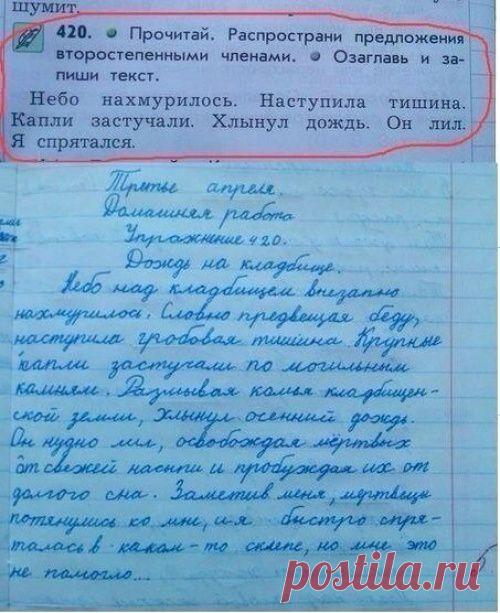 шумит.
420. • Прочитай. Распространи предложения
второстепенными членами. • Озаглавь и за-
пиши текст.
Небо нахмурилось. Наступила тишина.
Капли застучали. Хлынул дождь. Он лил.
Я спрятался.
Третье апреля.
Домашняя работа
Упражнение 420.
Дождь на кладбище.
Небо над кладбищем внезапно
нахмурилось. Словно предвещая беду,
наступила гробовая тишина. Крупные
капли застучали по могильным
камням. Размывая комья кладбищен-
ской земли, хлынул осенний дождь.
Он нудно лил, освобождая мёртвых
от свежей насыпи и пробуждая их от
долгого сна. Заметив меня, мертвецы
потянулись ко мне, и я быстро спря-
талась в каком-то склепе, но мне это
не помогло...
postila.ru